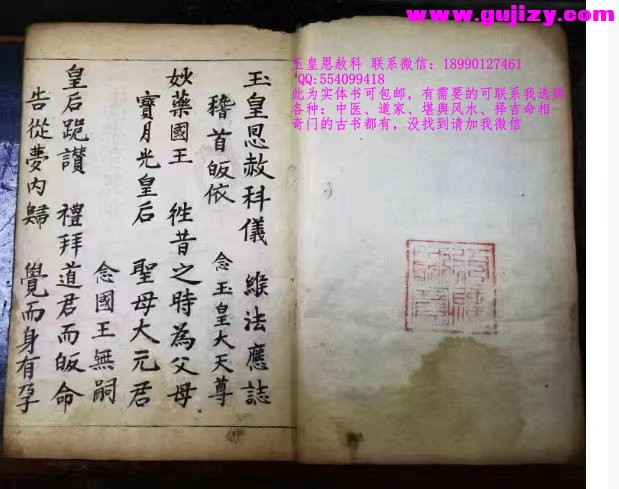 www.gujizy.com
玉皇恩赦科 联系微信：18990127461
QQ:554099418
此为实体书可包邮，有需要的可联系我选购
各种：中医、道家、堪舆风水、择吉命相
奇门的古书都有，没找到请加我微信
玉皇恩赦科儀 維法應誌
稽首皈依 念玉皇大天尊
妙藥國王 徃昔之時為父母
寶月光皇后 聖母大元君
念國王無嗣
皇后跪讃 禮拜道君而皈命
告從夢內歸 覺而身有孕